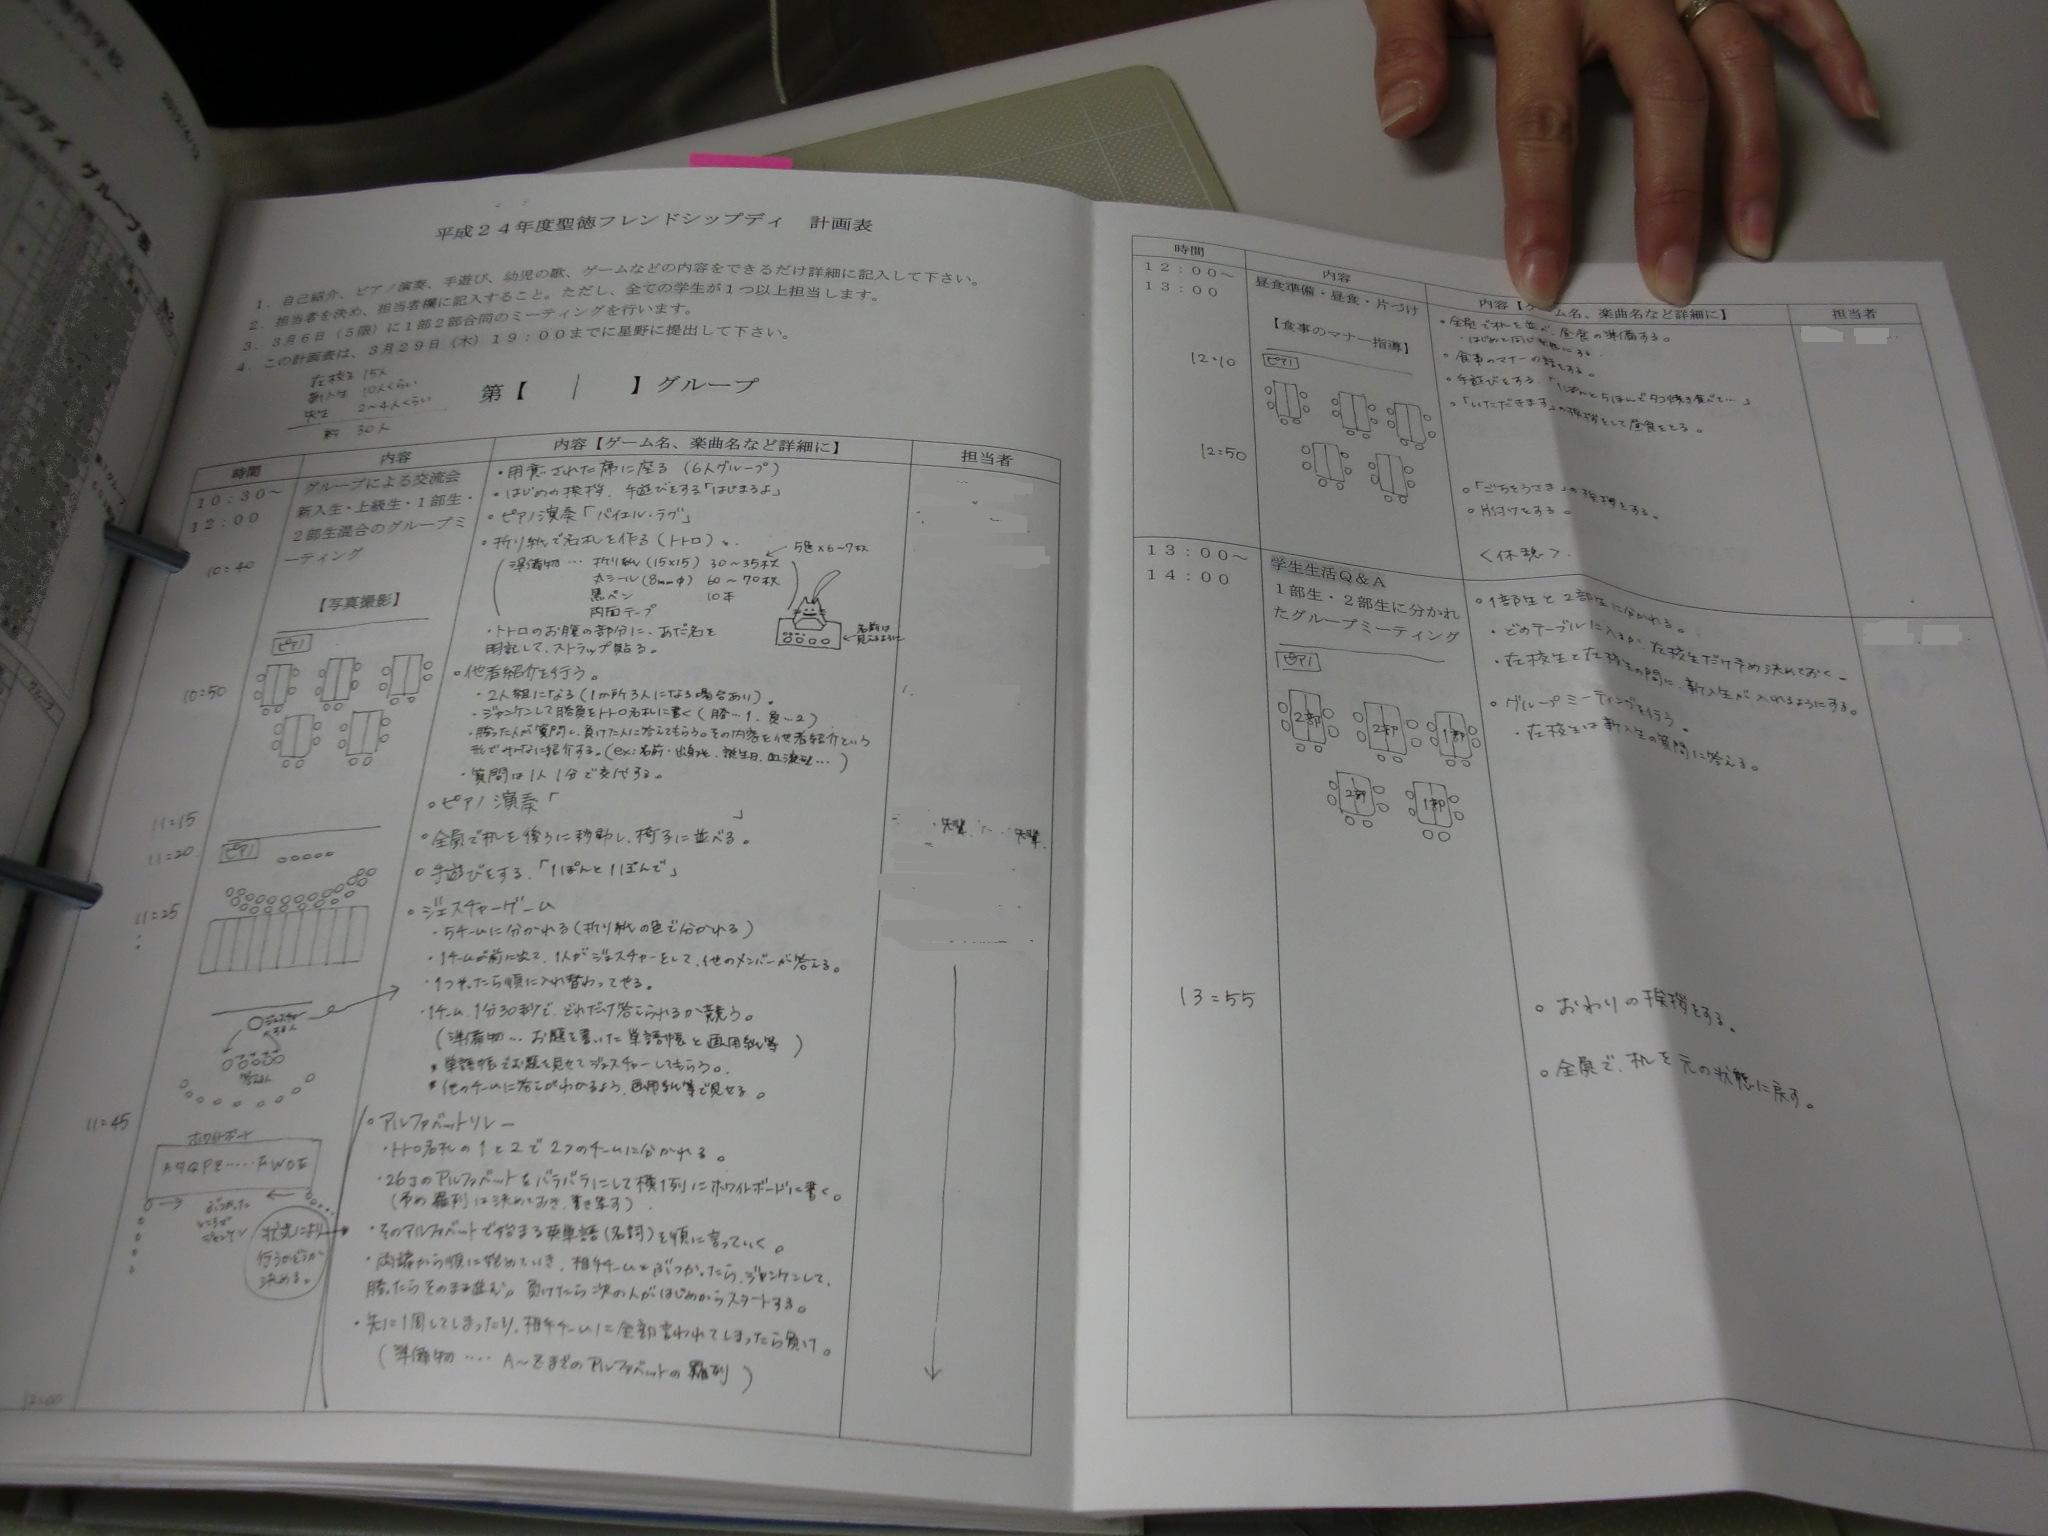 平成２４年度聖徳フレンドシップディ　計画表
１．自己紹介、ピアノ演奏、手遊び、幼児の歌、ゲームなどの内容をできるだけ詳細に記入して下さい。
２．担当者を決め、担当者欄に記入すること。ただし、全ての学生が１つ以上担当します。
３．３月６日（５限）に１部２部合同のミーティングを行います。
４．この計画表は、３月２９日（木）１９：００までに星野に提出して下さい。
在校生 15人
新入生 10人くらい
先生 2〜4人くらい
約 30人
第【　1　】グループ
時間　内容　内容【ゲーム名、楽曲名など詳細に】　担当者
１０：３０〜
１２：００
グループによる交流会
新入生・上級生・１部生・
２部生混合のグループミ
ーティング
【写真撮影】
ピアノ
・用意された席に座る（6人グループ）
・はじめの挨拶、手遊びをする「はじまるよ」
・ピアノ演奏「バイエル・ラグ」
10:40
・折り紙で名札を作る（トトロ）
5色×6〜7枚
（準備物… 折り紙（15×15） 30〜35枚
丸シール（8mmφ） 60〜70枚
黒ペン 10本
両面テープ
名前は見えるように
・トトロのお腹の部分に、あだ名を
明記して、ストラップ貼る。
10:50
○他者紹介を行う。
・2人組になる（1か所3人になる場合あり）。
・ジャンケンして勝負をトトロ名札に書く（勝…1、負…2）
・勝った人が質問し、負けた人に答えてもらう。その内容を他者紹介という
形でみんなに紹介する。（ex:名前・出身地、誕生日、血液型…）
・質問は1人1分で交代する。
11:15
○ピアノ演奏「　」
先輩、先輩
11:20
○全員で机を後ろに移動し、椅子に並べる。
ピアノ
○手遊びをする、「1ぽんと1ぽんで」
11:25
○ジェスチャーゲーム
・5チームに分かれる（折り紙の色で分かれる）
・1チームが前に出て、1人がジェスチャーをして、他のメンバーが答える。
・1つやったら順に入れ替わってやる。
・1チーム、1分30秒で、どれだけ答えられるか競う。
（準備物… お題を書いた単語帳と画用紙等）
＊単語帳でお題を見せてジェスチャーしてもらう。
＊他のチームに答えがわかるよう、画用紙等で見せる。
11:45
○アルファベットリレー
・トトロ名札の1と2で2つのチームに分かれる。
・26コのアルファベットをバラバラにして横1列にホワイトボードに書く。
（予め羅列は決めておき、書き写す）
・そのアルファベットで始まる英単語（名詞）を順に言っていく。
・両端から順に始めていき、相手チームとぶつかったら、ジャンケンして、
勝ったらそのまま進む。負けたら次の人がはじめからスタートする。
・先に1周してしまったり、相手チームに全部言われてしまったら負け。
（準備物…… A〜Zまでのアルファベットの羅列）
ホワイトボード
ぶつかった
ところで
ジャンケン
状況により
行うかどうか
決める。
12:00
時間　内容　内容【ゲーム名、楽曲名など詳細に】　担当者
１２：００〜
１３：００
昼食準備・昼食・片づけ
【食事のマナー指導】
ピアノ
・全員で机を並べ、昼食の準備する。
12:10
○食事のマナーの話をする。
○手遊びをする、「1ぽんと5ほんでタコ焼き食べて…」
○「いただきます」の挨拶をして昼食をとる。
12:50
○「ごちそうさま」の挨拶をする。
○片付けをする。
＜休憩＞
１３：００〜
１４：００
学生生活Ｑ＆Ａ
１部生・２部生に分かれ
たグループミーティング
ピアノ
2部　2部　1部
2部　1部
○1部生と2部生に分かれる。
・どのテーブルに入るか、在校生だけ予め決めておく。
・在校生と在校生の間に、新入生が入れるようにする。
○グループミーティングを行う。
・在校生は新入生の質問に答える。
13:55
○おわりの挨拶をする。
○全員で、机を元の状態に戻す。